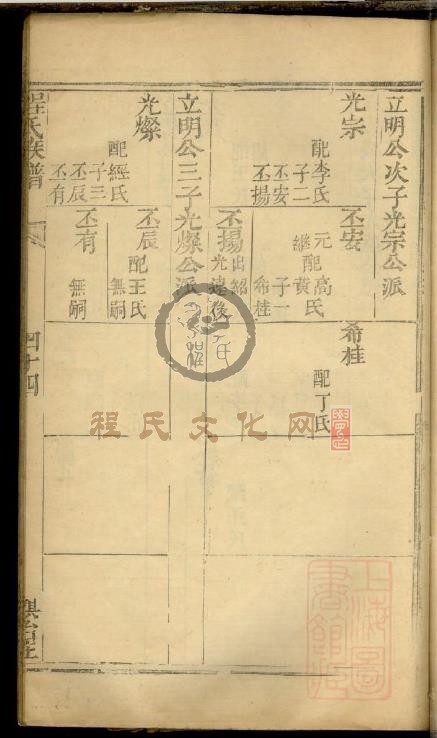 立明公次子光宗公派
光宗
配李氏
子二
丕安
丕揚
丕安
元配高氏
繼 黃氏
子一
希桂
丕揚出紹
光建後
希桂
配丁氏
立明公三子光燦公派
光燦
配經氏
子三
丕辰
丕有
丕辰
配王氏
無嗣
丕有
無嗣
程氏族譜
四十四
程氏文化网
上海圖書館藏